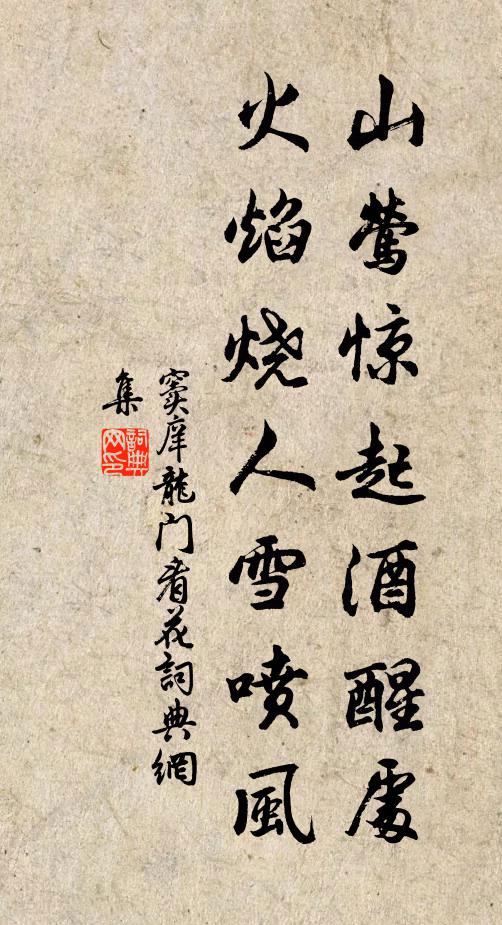 山莺惊起酒醒處
火焰烧人雪喷風
窦庠龍门看花詞典網
集
詞典网印